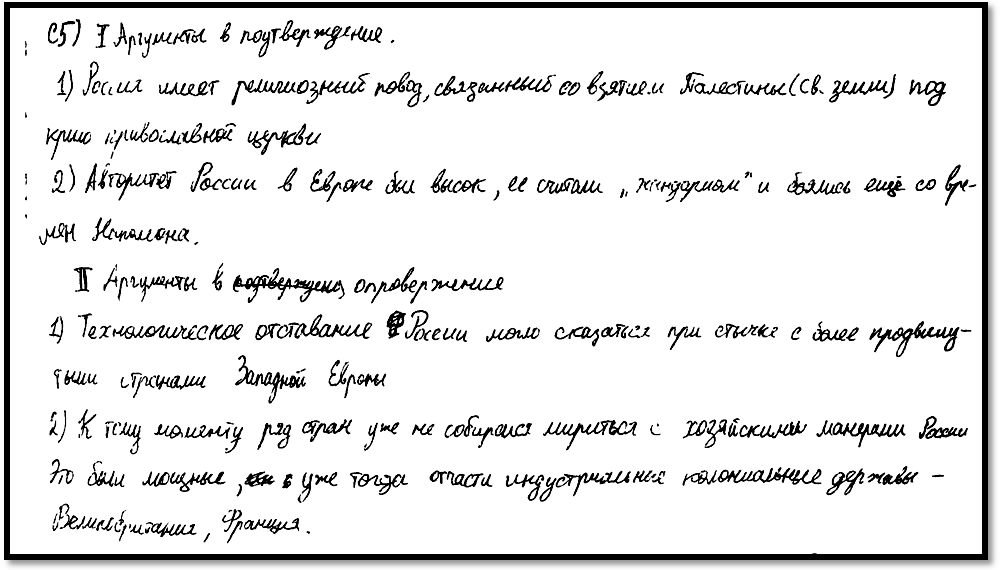 С5) I Аргументы в подтверждение.
1) Россия имеет религиозный повод, связанный со взятием Палестины (Св. земли) под
крыло православной церкви
2) Авторитет России в Европе был высок, ее считали „жандармом" и боялись ещё со вре-
мён Наполеона.
II Аргументы в опровержение
1) Технологическое отставание России могло сказаться при стычке с более продвину-
тыми странами Западной Европы
2) К тому моменту ряд стран уже не собирался мириться с хозяйскими манерами России
Это были мощные, уже тогда отчасти индустриальные колониальные державы –
Великобритания, Франция.